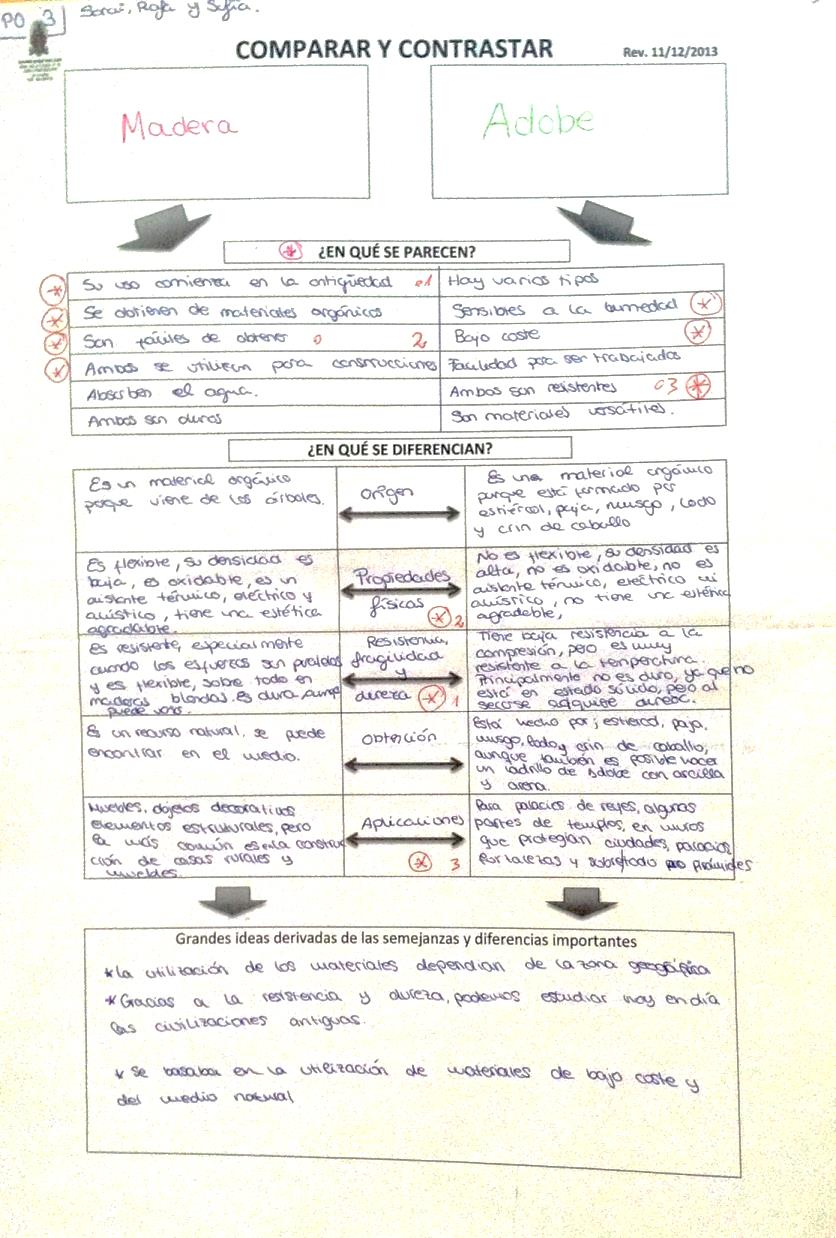 PO 3 Sorai, Rafa y Sofía.
COMPARAR Y CONTRASTAR
Rev. 11/12/2013
Madera
Adobe
¿EN QUÉ SE PARECEN?
Su uso comienza en la antigüedad 1
Hay varios tipos
Se obtienen de materiales orgánicos
Sensibles a la humedad
Son fáciles de obtener 2
Bajo coste
Ambos se utilizan para construcciones
Facilidad para ser trabajados
Absorben el agua.
Ambos son resistentes 3
Ambos son duros
Son materiales versátiles.
¿EN QUÉ SE DIFERENCIAN?
Es un material orgánico
porque viene de los árboles.
Origen
Es una material orgánico
porque está formado por
estiércol, paja, musgo, lodo
y crin de caballo
Es flexible, su densidad es
baja, es oxidable, es un
aislante térmico, eléctrico y
acústico, tiene una estética
agradable.
Propiedades
físicas 2
No es flexible, su densidad es
alta, no es oxidable, no es
aislante térmico, eléctrico ni
acústico, no tiene una estética
agradable,
Es resistente, especialmente
cuando los esfuerzos son paralelos
y es flexible, sobre todo en
maderas blandas. Es dura, aunque
puede
Resistencia,
fragilidad
y
dureza 1
Tiene baja resistencia a la
compresión, pero es muy
resistente a la temperatura.
Principalmente no es duro, ya que no
está en estado sólido, pero al
secarse adquiere dureza.
Es un recurso natural, se puede
encontrar en el medio.
Obtención
Está hecho por; estiercol, paja,
musgo, lodo y crin de caballo,
aunque también es posible hacer
un ladrillo de adobe con arcilla
y arena.
Muebles, objetos decorativos
elementos estructurales, pero
la más común es en la construc
ción de casas rurales y
muebles.
Aplicaciones
3
Para palacios de reyes, algunas
partes de templos, en muros
que protegían ciudades, palacios,
fortalezas y sobretodo pirámides
Grandes ideas derivadas de las semejanzas y diferencias importantes
* La utilización de los materiales dependian de la zona geográfica
* Gracias a la resistencia y dureza, podemos estudiar hoy en día
las civilizaciones antiguas.
* Se basaba en la utilización de materiales de bajo coste y
del medio natural